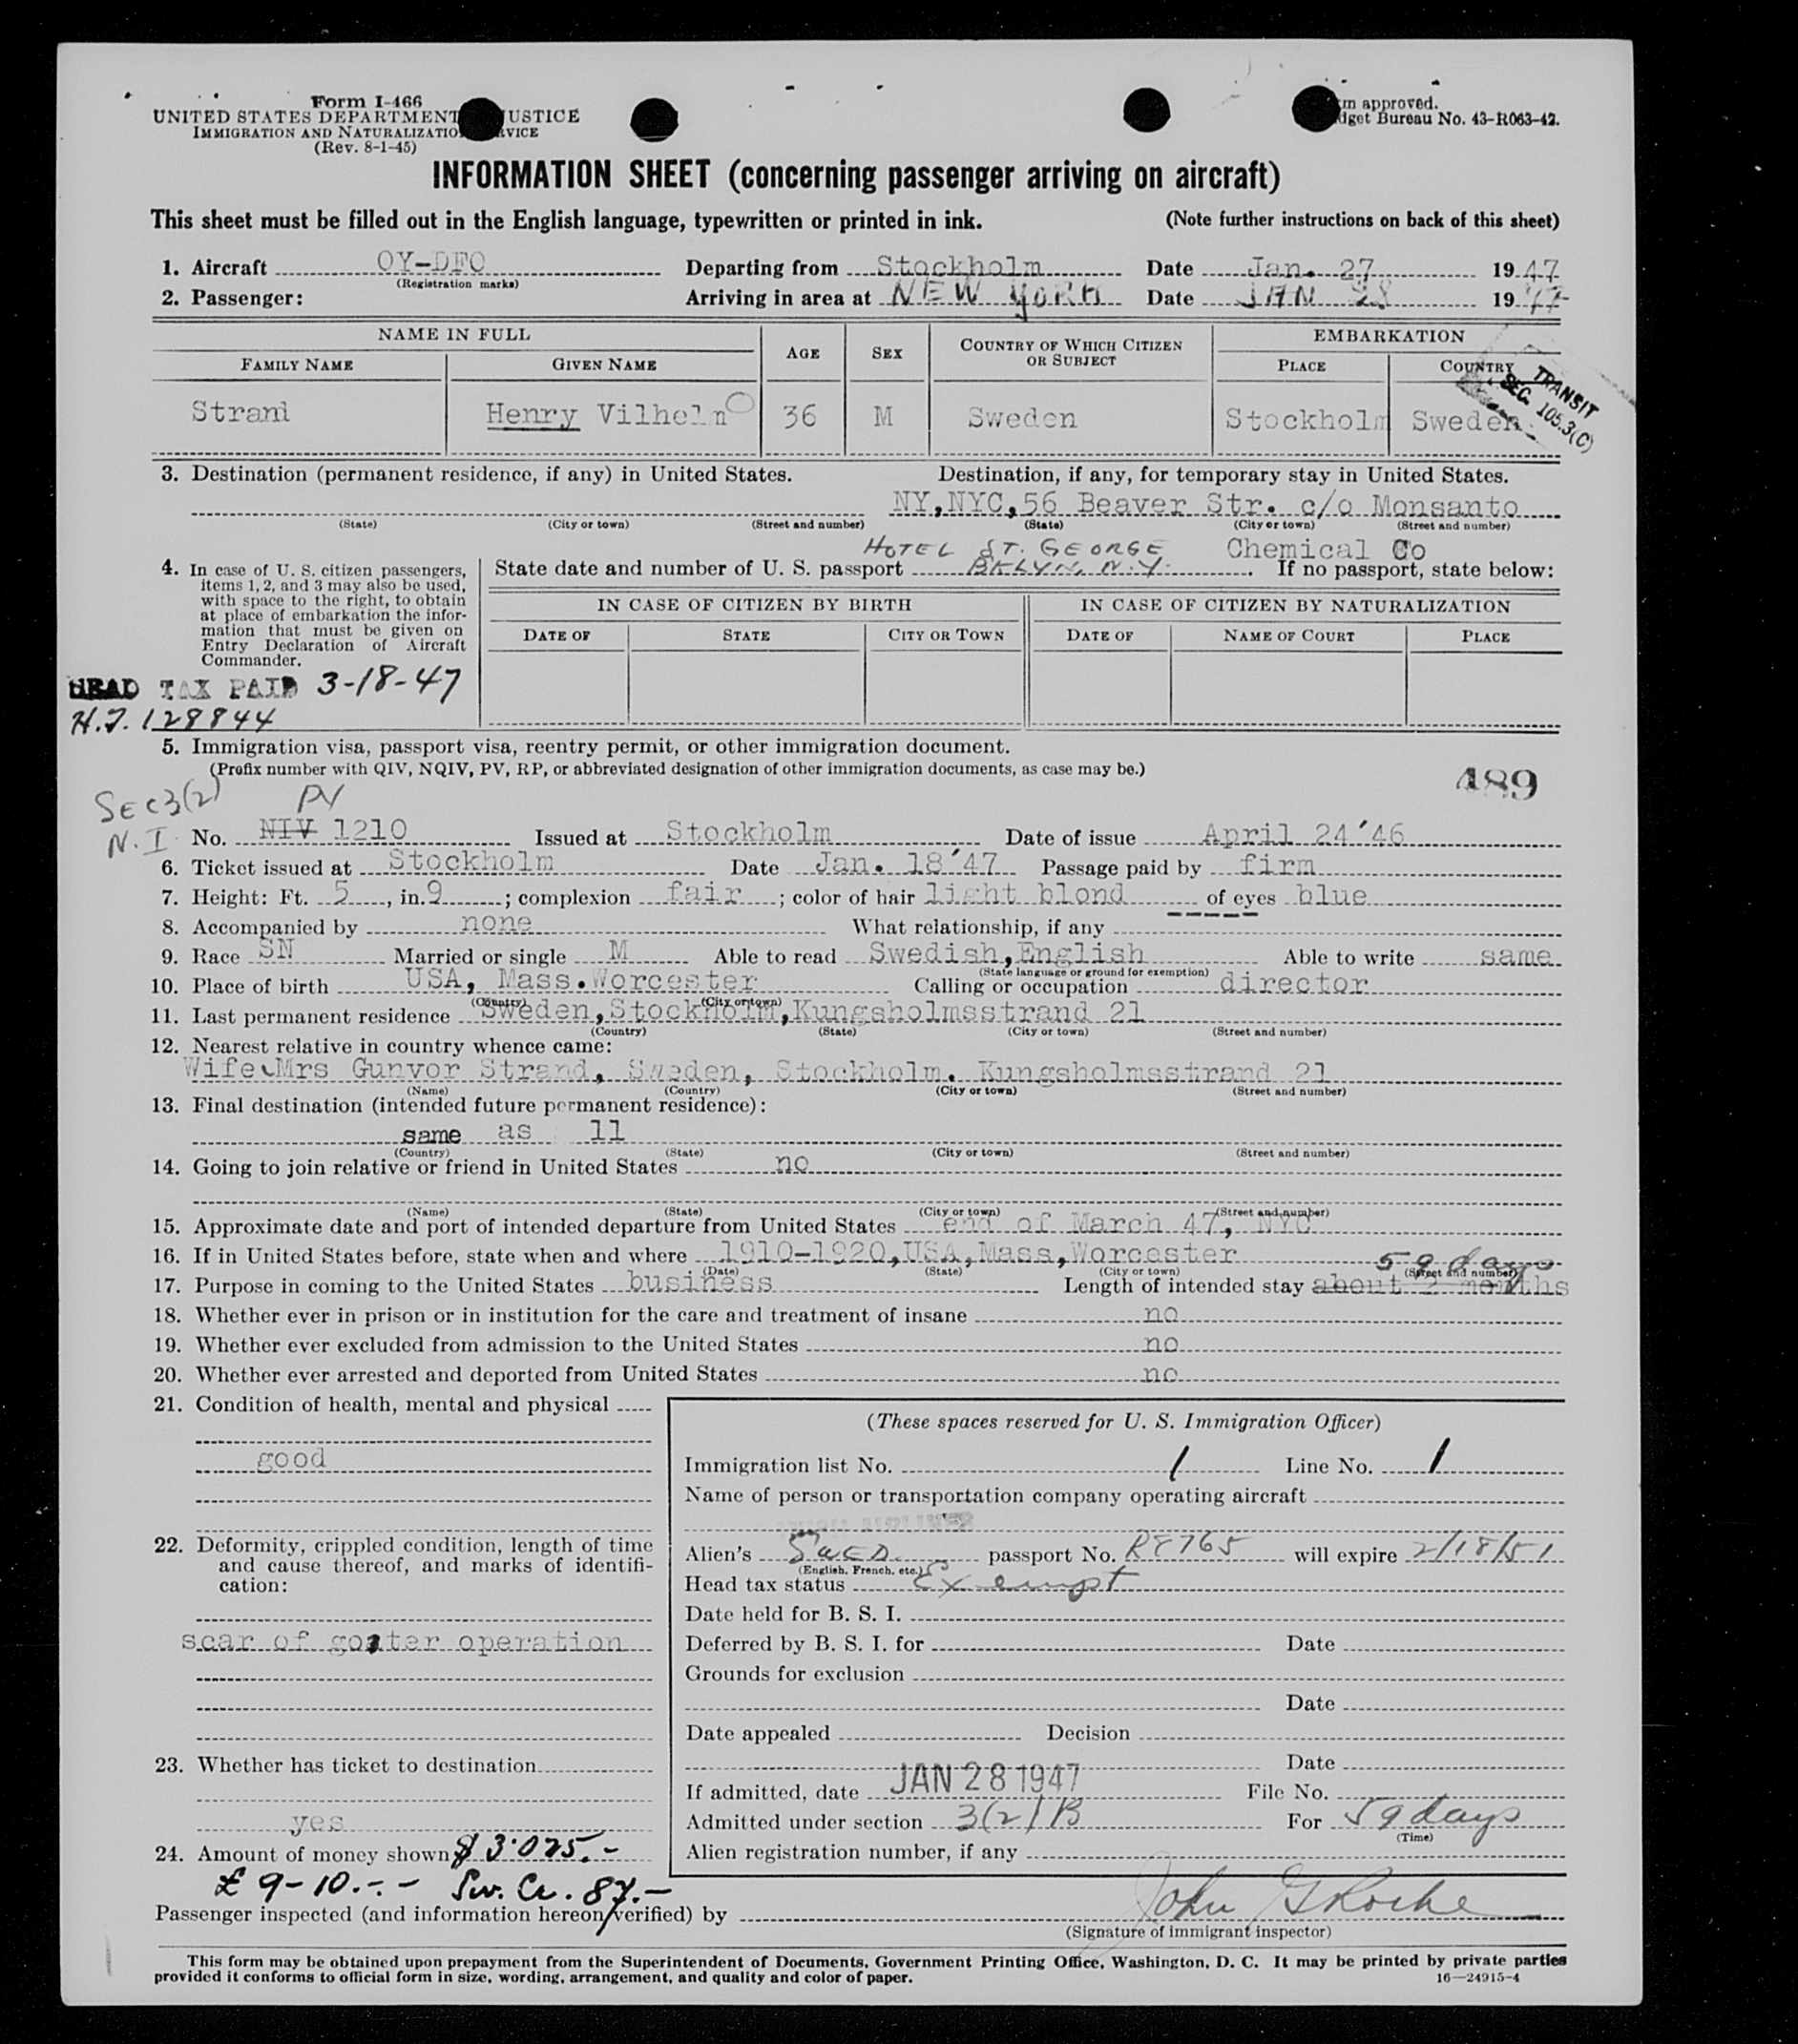 Form I-466
UNITED STATES DEPARTMENT USTICE
IMMIGRATION AND NATURALIZATIO RVICE
(Rev. 8-1-45)
m approved.
dget Bureau No. 43-R063-42.
INFORMATION SHEET (concerning passenger arriving on aircraft)
This sheet must be filled out in the English language, typewritten or printed in ink. (Note further instructions on back of this sheet)
1. Aircraft OY-DFO Departing from Stockholm Date Jan. 27 1947
(Registration marks)
2. Passenger: Arriving in area at NEW YORK Date JAN 28 1947
NAME IN FULL AGE SEX COUNTRY OF WHICH CITIZEN OR SUBJECT EMBARKATION
FAMILY NAME GIVEN NAME PLACE COUNTRY
TRANSIT
SEC. 105.3(C)
Strand Henry Vilhelm 36 M Sweden Stockholm Sweden
3. Destination (permanent residence, if any) in United States. Destination, if any, for temporary stay in United States.
NY,NYC,56 Beaver Str. c/o Monsanto
(State) (City or town) (Street and number) (State) (City or town) (Street and number)
HOTEL ST. GEORGE Chemical Co
4. In case of U. S. citizen passengers, items 1, 2, and 3 may also be used, with space to the right, to obtain at place of embarkation the information that must be given on Entry Declaration of Aircraft Commander.
State date and number of U. S. passport BKLYN, N.Y. If no passport, state below:
IN CASE OF CITIZEN BY BIRTH IN CASE OF CITIZEN BY NATURALIZATION
DATE OF STATE CITY OR TOWN DATE OF NAME OF COURT PLACE
HEAD TAX PAID 3-18-47
H.T. 128844
5. Immigration visa, passport visa, reentry permit, or other immigration document.
(Prefix number with QIV, NQIV, PV, RP, or abbreviated designation of other immigration documents, as case may be.)
489
SEC 3(2) PV
N.I. No. NIV 1210 Issued at Stockholm Date of issue April 24'46
6. Ticket issued at Stockholm Date Jan. 18'47 Passage paid by firm
7. Height: Ft. 5, in. 9; complexion fair; color of hair light blond of eyes blue
8. Accompanied by none What relationship, if any
9. Race SN Married or single M Able to read Swedish,English Able to write same
(State language or ground for exemption)
10. Place of birth USA, Mass.Worcester Calling or occupation director
(Country) (City or town)
11. Last permanent residence Sweden,Stockholm,Kungsholmsstrand 21
(Country) (State) (City or town) (Street and number)
12. Nearest relative in country whence came:
Wife Mrs Gunvor Strand, Sweden, Stockholm. Kungsholmsstrand 21
(Name) (Country) (City or town) (Street and number)
13. Final destination (intended future permanent residence):
same as 11
(Country) (State) (City or town) (Street and number)
14. Going to join relative or friend in United States no
(Name) (State) (City or town) (Street and number)
15. Approximate date and port of intended departure from United States end of March 47, NYC
16. If in United States before, state when and where 1910-1920,USA,Mass,Worcester
(Date) (State) (City or town) (Street and number)
59 days
17. Purpose in coming to the United States business Length of intended stay about 2 months
18. Whether ever in prison or in institution for the care and treatment of insane no
19. Whether ever excluded from admission to the United States no
20. Whether ever arrested and deported from United States no
21. Condition of health, mental and physical
good
22. Deformity, crippled condition, length of time and cause thereof, and marks of identification:
scar of goiter operation
23. Whether has ticket to destination
yes
24. Amount of money shown $ 3.025.-
£ 9-10.-.- Sw. Cr. 87.-
(These spaces reserved for U. S. Immigration Officer)
Immigration list No. 1 Line No. 1
Name of person or transportation company operating aircraft
Alien's SWED passport No. R8765 will expire 2/18/51
(English, French, etc.)
Head tax status Exempt
Date held for B. S. I.
Deferred by B. S. I. for Date
Grounds for exclusion
Date
Date appealed Decision
Date
If admitted, date JAN 28 1947 File No.
Admitted under section 3(2) B For 59 days
(Time)
Alien registration number, if any
Passenger inspected (and information hereon verified) by John G Roche
(Signature of immigrant inspector)
This form may be obtained upon prepayment from the Superintendent of Documents, Government Printing Office, Washington, D. C. It may be printed by private parties
provided it conforms to official form in size, wording, arrangement, and quality and color of paper. 16—24915-4